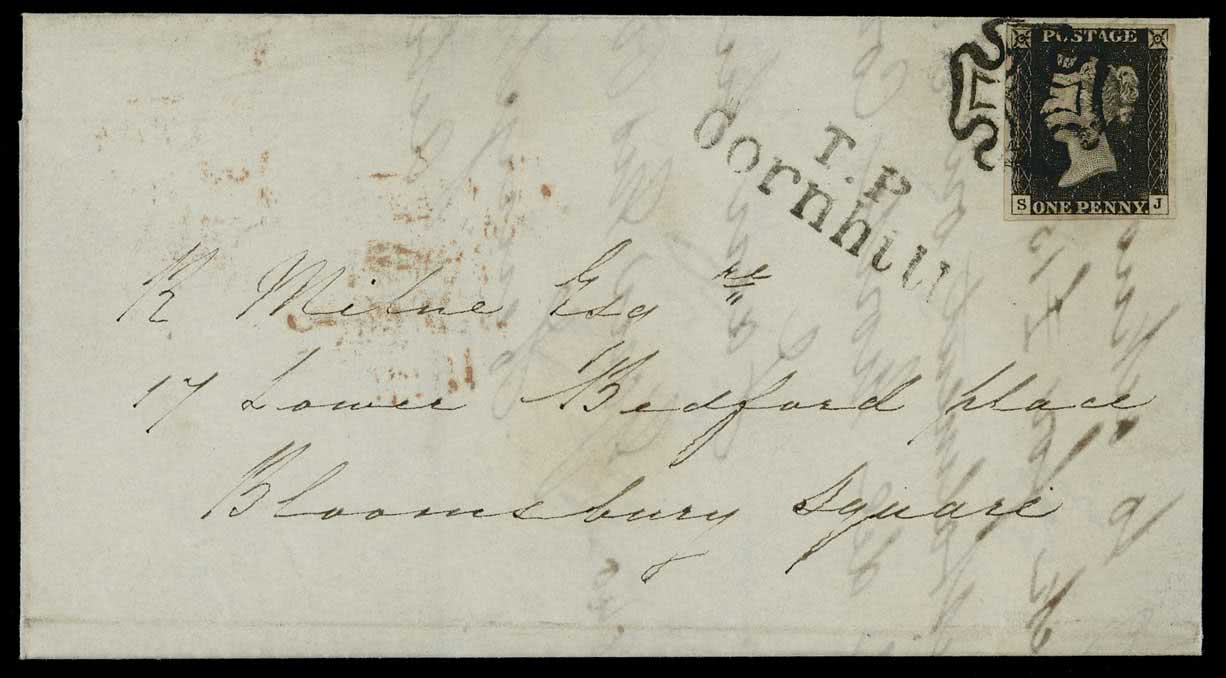 POSTAGE
S ONE PENNY. J
T.P
Cornhill
R Milne Esqre
17 Lower Bedford place
Bloomsbury Square